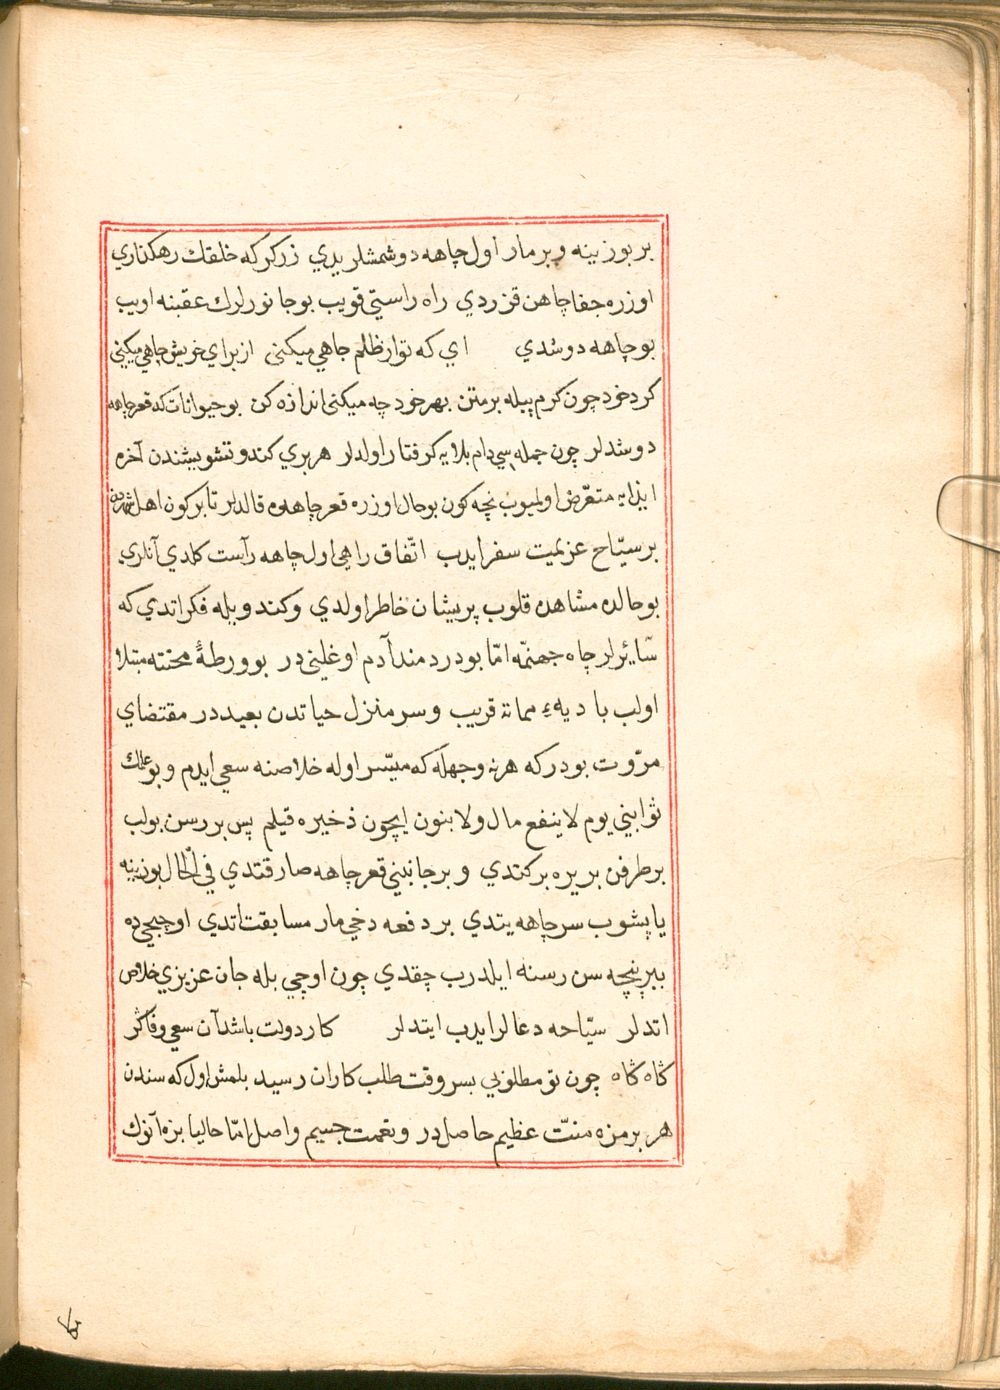 بر بوزينه و بر مار اول چاهه دوشمشلريدي زركر كه خلقك رهكذاري
اوزره جفا چاهن قزردي راه راستي قويب بو جانورلرك عقبنه اويب
بو چاهه دوشدي اي كه تو از ظلم چاهي ميكني از براي خويش چاهي ميكني
كرد خود چون كرم پيله بر متن بهر خود چه ميكني اندازه كن بو حيوانات كه قعر چاهه
دوشدلر چون جمله سي دام بلايه كرفتار اولدلر هر بري كندو تشويشندن آخره
ايذايه متعرّض اولميوب نچه كون بو حال اوزره قعر چاهده قالدلر تا بر كون اهل شهردن
بر سيّاح عزيمت سفر ايدب اتّفاق راهي اول چاهه رآست كلدي آنلري
بو حالده مشاهده قلوب پريشان خاطر اولدي و كندويله فكر اتدي كه
سٓائرلر چاه جهنّمه امّا بو دردمند آدم اوغلنيدر بو ورطۀ محنته مبتلا
اولب باديهء مماته قريب و سر منزل حياتدن بعيددر مقتضاي
مروّت بودركه هر نه وجهله كه ميسّر اوله خلاصنه سعي ايدم و بو عملك
ثوابيني يوم لا ينفع مال ولا بنون ايچون ذخيره قيلم پس بر رسن بولب
بر طرفن بر يره بركتدي و بر جانبني قعر چاهه صارقتدي في الحال بوزينه
ياپشوب سر چاهه يتدي بر دفعه دخي مار مسابقت اتدي اوچنجيده
ببر پنچه سن رسنه ايلدرب چقدي چون اوچي بله جان عزيزي خلاص
اتدلر سيّاحه دعالر ايدب ايتدلر كار دولت باشد آن سعي و فا كز
كاه كاه چون تو مطلوبي بسر وقت طلبكاران رسيد بلمش اول كه سندن
هر برمزه منّت عظيم حاصلدر و نعمت جسيم واصل امّا حاليا بزه آنوك